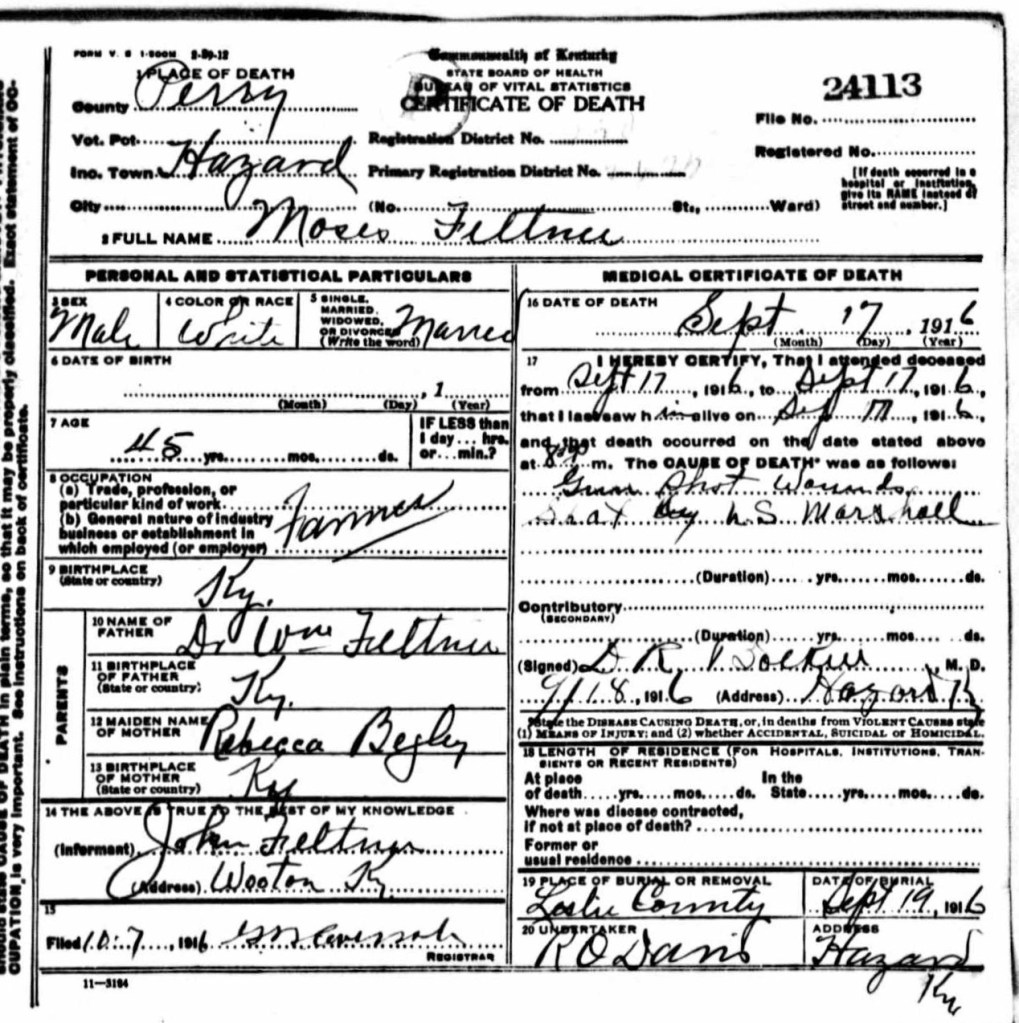 FORM V. S 1-500M 2-29-12
Commonwealth of Kentucky
STATE BOARD OF HEALTH
BUREAU OF VITAL STATISTICS
CERTIFICATE OF DEATH
24113
1 PLACE OF DEATH
County Perry
Vot. Pct.
Ino. Town Hazard
City
Registration District No.
Primary Registration District No.
(No. St., Ward)
File No.
Registered No.
[If death occurred in a
hospital or institution,
give its NAME instead of
street and number.]
2 FULL NAME Moses Feltner
PERSONAL AND STATISTICAL PARTICULARS
3 SEX
Male
4 COLOR OR RACE
White
5 SINGLE,
MARRIED,
WIDOWED,
OR DIVORCED
(Write the word)
Married
6 DATE OF BIRTH
, 1
(Month) (Day) (Year)
7 AGE
45 yrs. mos. ds.
IF LESS than
1 day... hrs.
or...min.?
8 OCCUPATION
(a) Trade, profession, or
particular kind of work
(b) General nature of industry
business or establishment in
which employed (or employer)
Farmer
9 BIRTHPLACE
(State or country)
Ky.
PARENTS
10 NAME OF
FATHER
Dr Wm Feltner
11 BIRTHPLACE
OF FATHER
(State or country)
Ky.
12 MAIDEN NAME
OF MOTHER
Rebecca Begley
13 BIRTHPLACE
OF MOTHER
(State or country)
Ky
14 THE ABOVE IS TRUE TO THE BEST OF MY KNOWLEDGE
(Informant) John Feltner
(Address) Wooton Ky
15
Filed 10-7, 1916
REGISTRAR
11-3184
MEDICAL CERTIFICATE OF DEATH
16 DATE OF DEATH
Sept. 17, 1916
(Month) (Day) (Year)
17 I HEREBY CERTIFY, That I attended deceased
from Sept 17, 1916, to Sept 17, 1916,
that I last saw him alive on Sep 17, 1916,
and that death occurred on the date stated above
at m. The CAUSE OF DEATH* was as follows:
Gun Shot Wounds
Shot by U.S Marshall
(Duration) yrs. mos. ds.
Contributory
(SECONDARY)
(Duration) yrs. mos. ds.
(Signed) D R M. D.
9/18, 1916 (Address) Hazard Ky
*State the DISEASE CAUSING DEATH, or, in deaths from VIOLENT CAUSES state
(1) MEANS OF INJURY; and (2) whether ACCIDENTAL, SUICIDAL or HOMICIDAL.
18 LENGTH OF RESIDENCE (FOR HOSPITALS, INSTITUTIONS, TRAN-
SIENTS OR RECENT RESIDENTS)
At place
of death yrs. mos. ds.
In the
State yrs. mos. ds.
Where was disease contracted,
if not at place of death?
Former or
usual residence
19 PLACE OF BURIAL OR REMOVAL
Leslie County
DATE OF BURIAL
Sept 19, 1916
20 UNDERTAKER
R O Davis
ADDRESS
Hazard
Ky
CAUSE OF DEATH in plain terms, so that it may be properly classified. Exact statement of OC-
CUPATION is very important. See instructions on back of certificate.